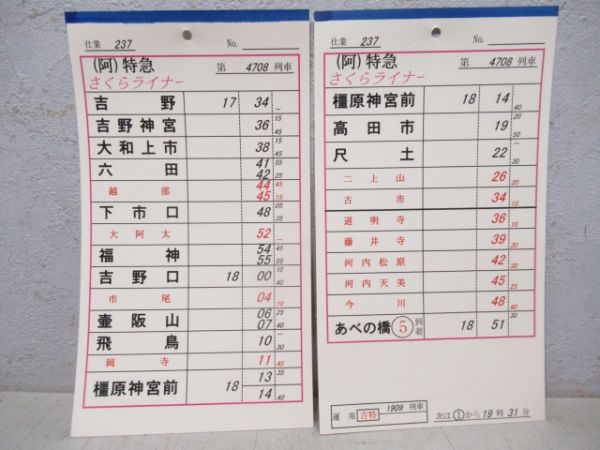 仕業 237 No.
(阿) 特急 第 4708 列車
さくらライナー
吉野 17 34 —
吉野神宮 36 15 45
大和上市 38 15 45
六田 41 55 42 25
越部 44 45 45 15
下市口 48 05 25
大阿太 52 —
福神 54 45 55 05
吉野口 18 00 10 40
市尾 04 10
壷阪山 06 25 07 40
飛鳥 10 — 30
岡寺 11 45
橿原神宮前 18 13 35 14 40
仕業 237 No.
(阿) 特急 第 4708 列車
さくらライナー
橿原神宮前 18 14 40
高田市 19 20 50
尺土 22 — 30
二上山 26 20
古市 34 15
道明寺 36 10
藤井寺 39 30
河内松原 42 30
河内天美 45 25
今川 48 40
あべの橋 5 到着 18 51 30
運用 吉特 1909 列車 次は①から19時31分